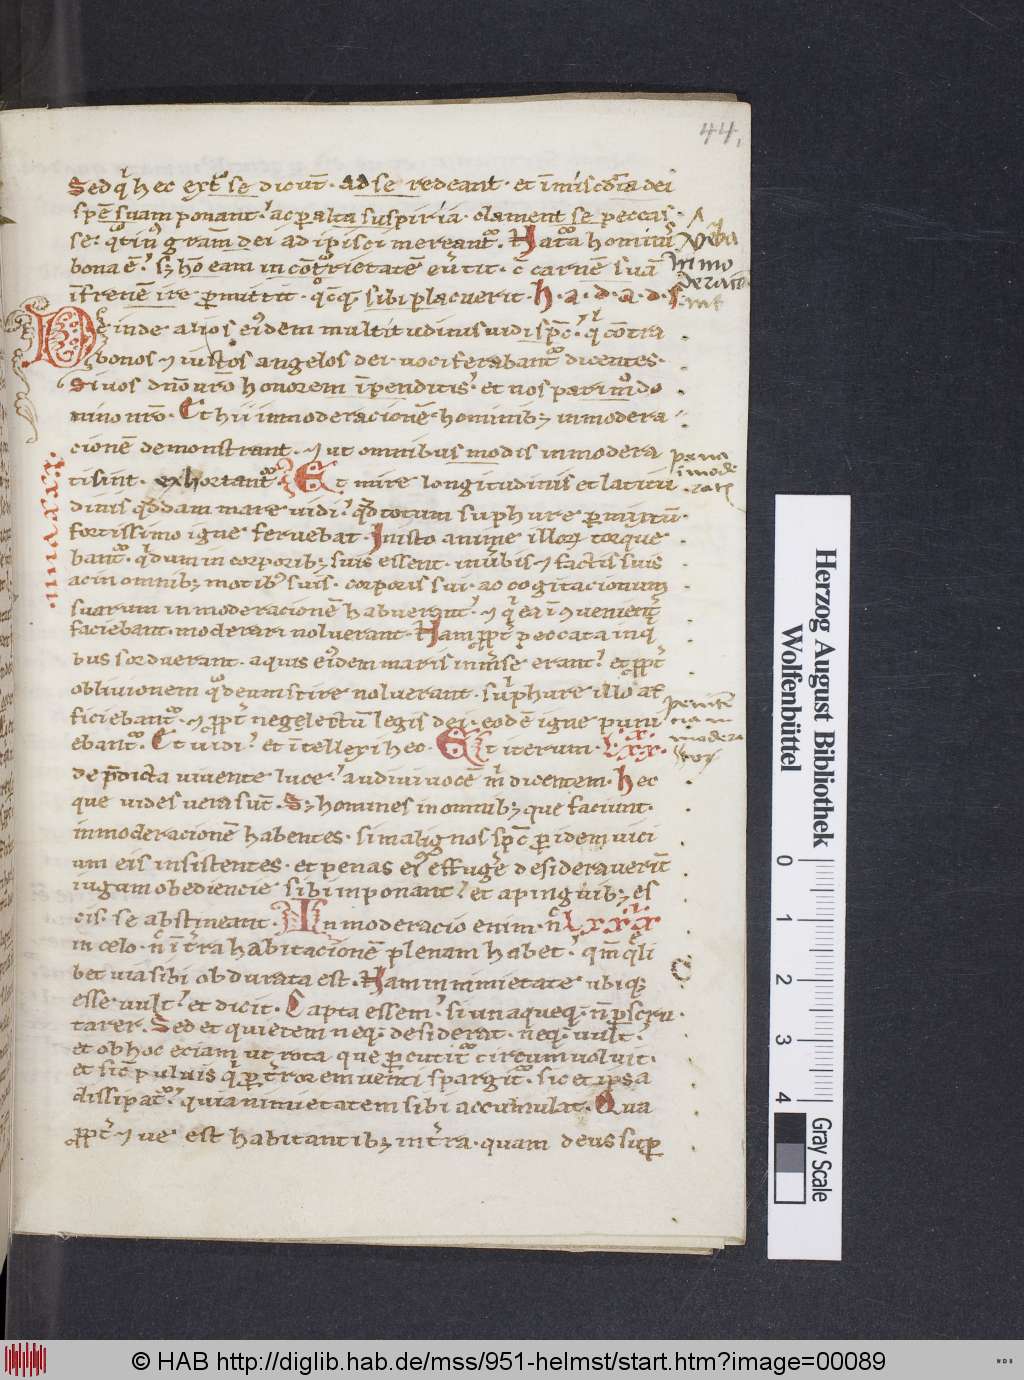 44,
Sed q hec ext se dicut · ad se redeant · et i misc̄dia dei
spē suam ponant · ac p alta suspiria · clament se peccas
se · qtin grām dei ad ipisci mereant · Nat̄a hominū
bona ē · sꝫ hō eam in cōt̄rietatē ūtit · c̄ carnē suā
ifrenē ire pmittit · qcq sibi placuerit · h · a · d · a · d · s
Deinde alios eidem multitudinis vidi spc̄ · q cont̄ra
bonos ⁊ iustos angelos dei vociferabant dicentes ·
Si vos dno vr̄o honorem ipenditis · et nos pari mdo
nino nr̄o · Et hii inmoderacionē hominibꝫ inmodera
cionē demonstrant · ⁊ ut omnibus modis inmodera
pena
imode
ratis
tisint · exhortant · Et mire longitudinis et latitu
dinis qddam mare vidi · qd totum sulphure pmixtū ·
fortissimo igne fervebat · In isto anime illorꝝ torque
bant · q dum in corporibꝫ suis essent · in ūbis ⁊ factis suis
ac in omnibꝫ motibꝰ suis · corporis sui · ac cogitacionum
suarum inmoderacionē habuerunt · ⁊ q ea ī ⁊venient
faciebant · moderari noluerant · Nam ppt peccata in q
bus sorduerant · aquis eidem maris inm̄se erant · et ppt
oblivionem q deum scire noluerant · sulphure illo af
ficiebant · ⁊ ppt neglectū legis dei · eodē igne puni
ebant · Et vidi · et itellexi hec · Et iterum · LXX
de p̄dicta vivente luce · audivi vocē m̄ dicentem · Hec
que vides vera sut̄ · Sꝫ homines in omnibꝫ que faciunt ·
inmoderacionē habentes · si malignos spc̄ p idem vici
um eis insistentes · et penas ei effugē desideraverit
iugum obediencie sibi inponant · et a pinguibꝫ es
cis · se abstineant · Inmoderacio enim · n̄ LXXX
in celo · n̄ ī t̄ra habitacionē plenam habet · qm̄ q̄li
bet via sibi obdurata est · Nam inmietate ubiqꝫ
esse vult · et dicit · Capta essem · si unaqueqꝫ n̄ pscru
tarer · Sed et quietem neqꝫ desiderat · neqꝫ vult ·
et ob hoc eciam ut rota que pcutit circumvolvit ·
et sic pulvis q p t̄rorem venti spargit · sic et ipsa
dissipat · quia nimietatem sibi accumulat · Qua
ppt ⁊ ve est habitantibꝫ in t̄ra · quam deus sup
Herzog August Bibliothek
Wolfenbüttel
0 1 2 3 4
Gray Scale
© HAB http://diglib.hab.de/mss/951-helmst/start.htm?image=00089
WDB